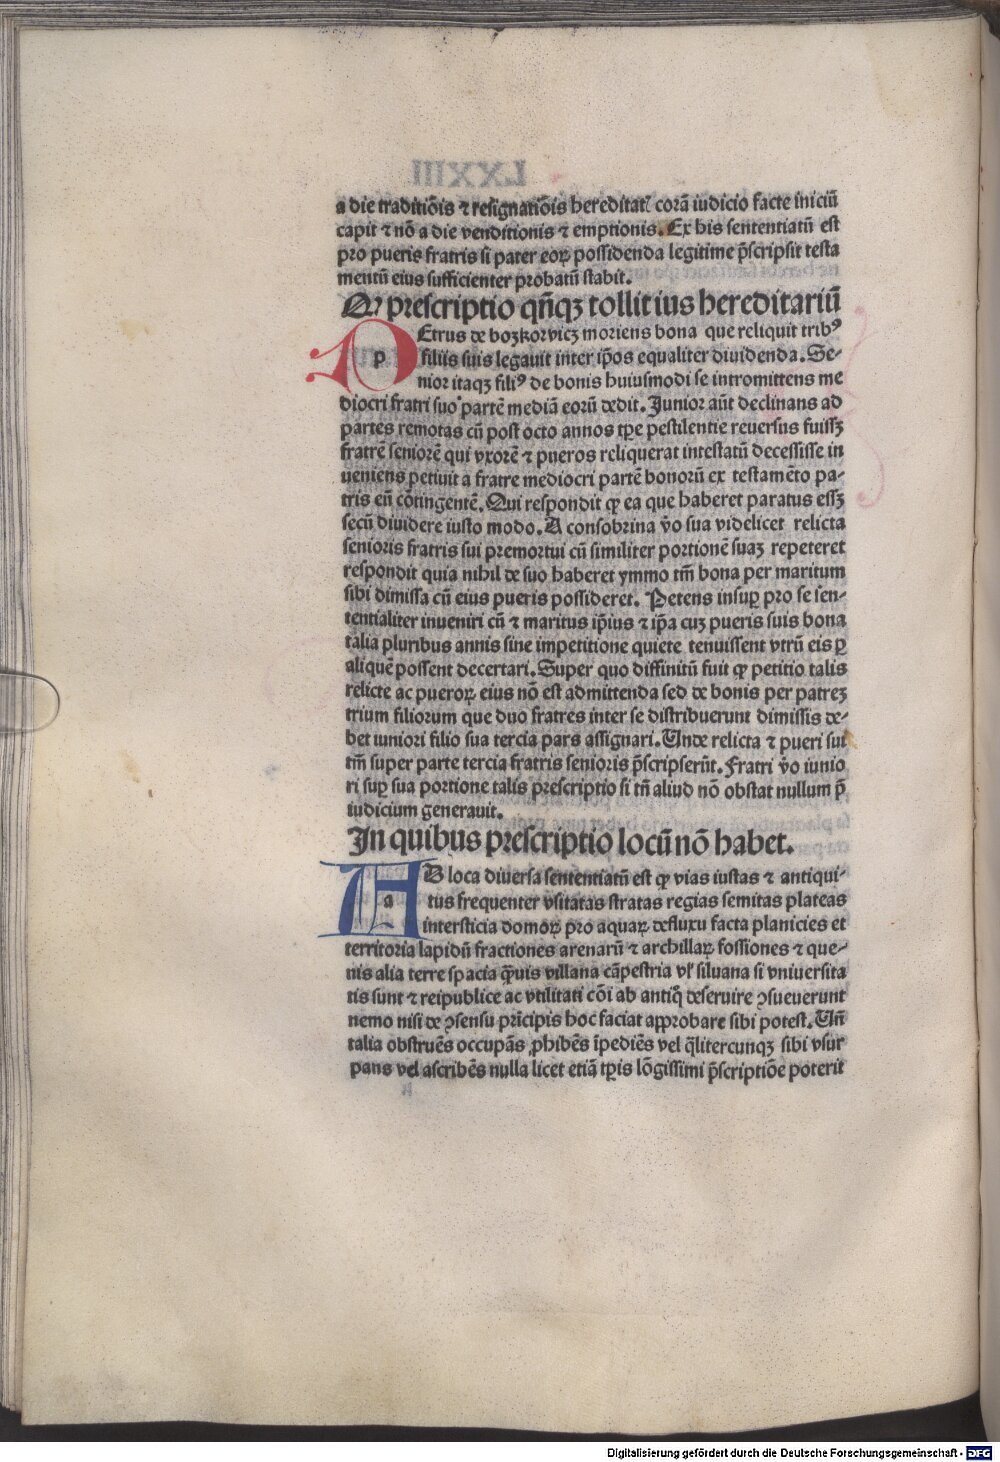 a die traditiõis ⁊ resignatiõis hereditatꝭ corã iudicio facte iniciũ
capit ⁊ nõ a die venditionis ⁊ emptionis. Ex his sententiatũ est
pro pueris fratris si pater eoꝝ possidenda legitime p̃scripsit testa
mentũ eius sufficienter probatũ stabit.
Qꝙ prescriptio qñqꝫ tollit ius hereditariũ
PEtrus de bozkorvicz moriens bona que reliquit tribꝰ
filiis suis legauit inter ip̃os equaliter diuidenda. Se-
nior itaqꝫ filiꝰ de bonis huiusmodi se intromittens me
diocri fratri suo partẽ mediã eorũ dedit. Junior aũt declinans ad
partes remotas cũ post octo annos tp̃e pestilentie reuersus fuissꝫ
fratrẽ seniorẽ qui vxorẽ ⁊ pueros reliquerat intestatũ decessisse in
ueniens petiuit a fratre mediocri partẽ bonorũ ex testamẽto pa-
tris eũ cõtingentẽ. Qui respondit qꝙ ea que haberet paratus essꝫ
secũ diuidere iusto modo. A consobrina ṽo sua videlicet relicta
senioris fratris sui premortui cũ similiter portionẽ suaꝫ repeteret
respondit quia nihil de suo haberet ymmo tm̃ bona per maritum
sibi dimissa cũ eius pueris possideret. Petens insuꝑ pro se sen-
tentialiter inueniri cũ ⁊ maritus ip̃ius ⁊ ip̃a cuꝫ pueris suis bona
talia pluribus annis sine impetitione quiete tenuissent vtrũ eis ꝑ
aliquẽ possent decertari. Super quo diffinitũ fuit qꝙ petitio talis
relicte ac pueroꝝ eius nõ est admittenda sed de bonis per patreꝫ
trium filiorum que duo fratres inter se distribuerunt dimissis de-
bet iuniori filio sua tercia pars assignari. Unde relicta ⁊ pueri sui
tm̃ super parte tercia fratris senioris p̃scripserũt. Fratri ṽo iunio
ri suꝑ sua portione talis prescriptio si tñ aliud nõ obstat nullum p̃
iudicium generauit.
In quibus prescriptio locũ nõ habet.
AD loca diuersa sententiatũ est qꝙ vias iustas ⁊ antiqui-
tus frequenter vsitatas stratas regias semitas plateas
intersticia domoꝝ pro aquaꝝ defluxu facta planicies et
territoria lapidũ fractiones arenarũ ⁊ archillaꝝ fossiones ⁊ que-
nis alia terre spacia qᷓuis villana cãpestria vl̕ siluana si vniuersita
tis sunt ⁊ reipublice ac vtilitati cõi ab antiq̃ deseruire ꝯsueuerunt
nemo nisi de ꝯsensu prĩcipis hoc faciat approbare sibi potest. Uñ
talia obstruẽs occupãs ꝓhibẽs ĩpediẽs vel q̃litercunqꝫ sibi vsur
pans vel ascribẽs nulla licet etiã tp̃is lõgissimi p̃scriptiõe poterit
Digitalisierung gefördert durch die Deutsche Forschungsgemeinschaft - DFG